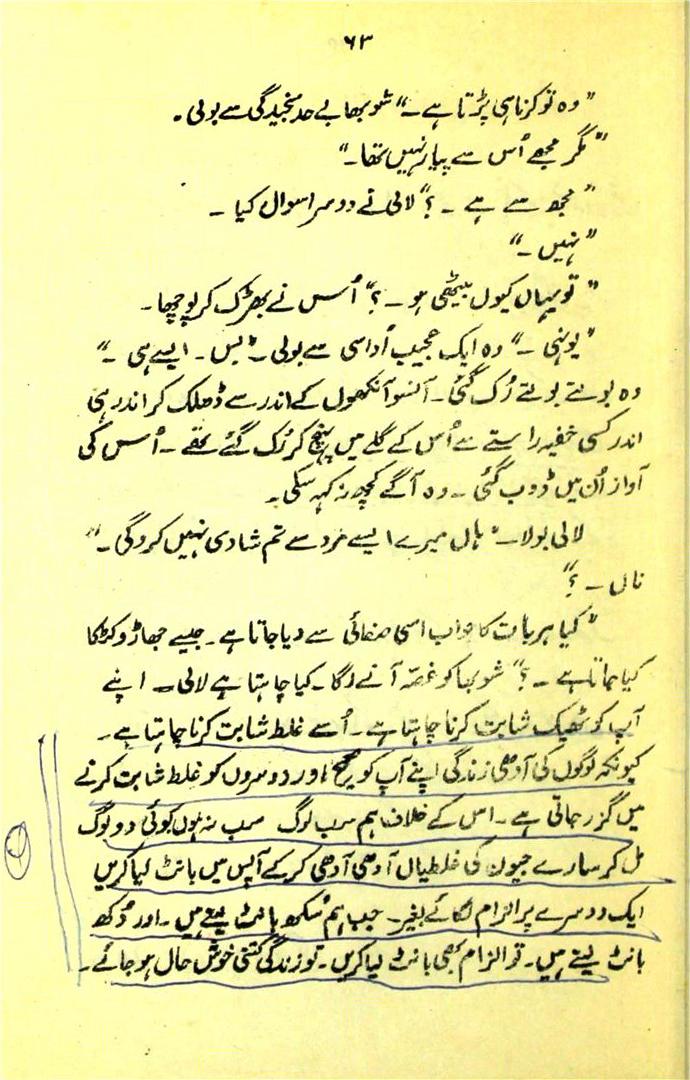 ۶۳
”وہ تو کرنا ہی پڑتا ہے۔“ شوبھا بے حد سنجیدگی سے بولی۔
”مگر مجھے اُس سے پیار نہیں تھا۔“
”مجھ سے ہے ۔ ؟“ لالی نے دوسرا سوال کیا ۔
”نہیں ۔“
”تو یہاں کیوں بیٹھی ہو ۔ ؟“ اُس نے بھڑک کر پوچھا۔
”یونہی ۔“ وہ ایک عجیب اُداسی سے بولی ۔ ”بس ۔ ایسے ہی ۔“
وہ بولتے بولتے رُک گئی ۔ آنسو آنکھوں کے اندر سے ڈھلک کر اندر ہی
اندر کسی خفیہ راستے سے اُس کے گلے میں پہنچ کر رُک گئے تھے ۔ اُس کی
آواز اُن میں ڈوب گئی ۔ وہ آگے کچھ نہ کہہ سکی ۔
لالی بولا ۔ ”ہاں میرے ایسے مرد سے تم شادی نہیں کرو گی ۔“
ناں ۔ ؟“
”کیا ہر بات کا جواب اسی صفائی سے دیا جاتا ہے ۔ جیسے جھاڑو کڑکا
کیا جاتا ہے ۔ ؟“ شوبھا کو غصّہ آنے لگا ۔ کیا چاہتا ہے لالی ۔ اپنے
آپ کو ٹھیک ثابت کرنا چاہتا ہے ۔ اُسے غلط ثابت کرنا چاہتا ہے ۔
کیونکہ لوگوں کی آدھی زندگی اپنے آپ کو صحیح اور دوسروں کو غلط ثابت کرنے
میں گزر جاتی ہے ۔ اس کے خلاف ہم سب لوگ سب نہ ہوں کوئی دو لوگ
مل کر سارے جیون کی غلطیاں آدھی آدھی کر کے آپس میں بانٹ لیا کریں
ایک دوسرے پر الزام لگائے بغیر ۔ جب ہم سُکھ بانٹ لیتے ہیں ۔ اور دُکھ
بانٹ لیتے ہیں ۔ تو الزام بھی بانٹ لیا کریں ۔ تو زندگی کتنی خوش حال ہو جائے ۔